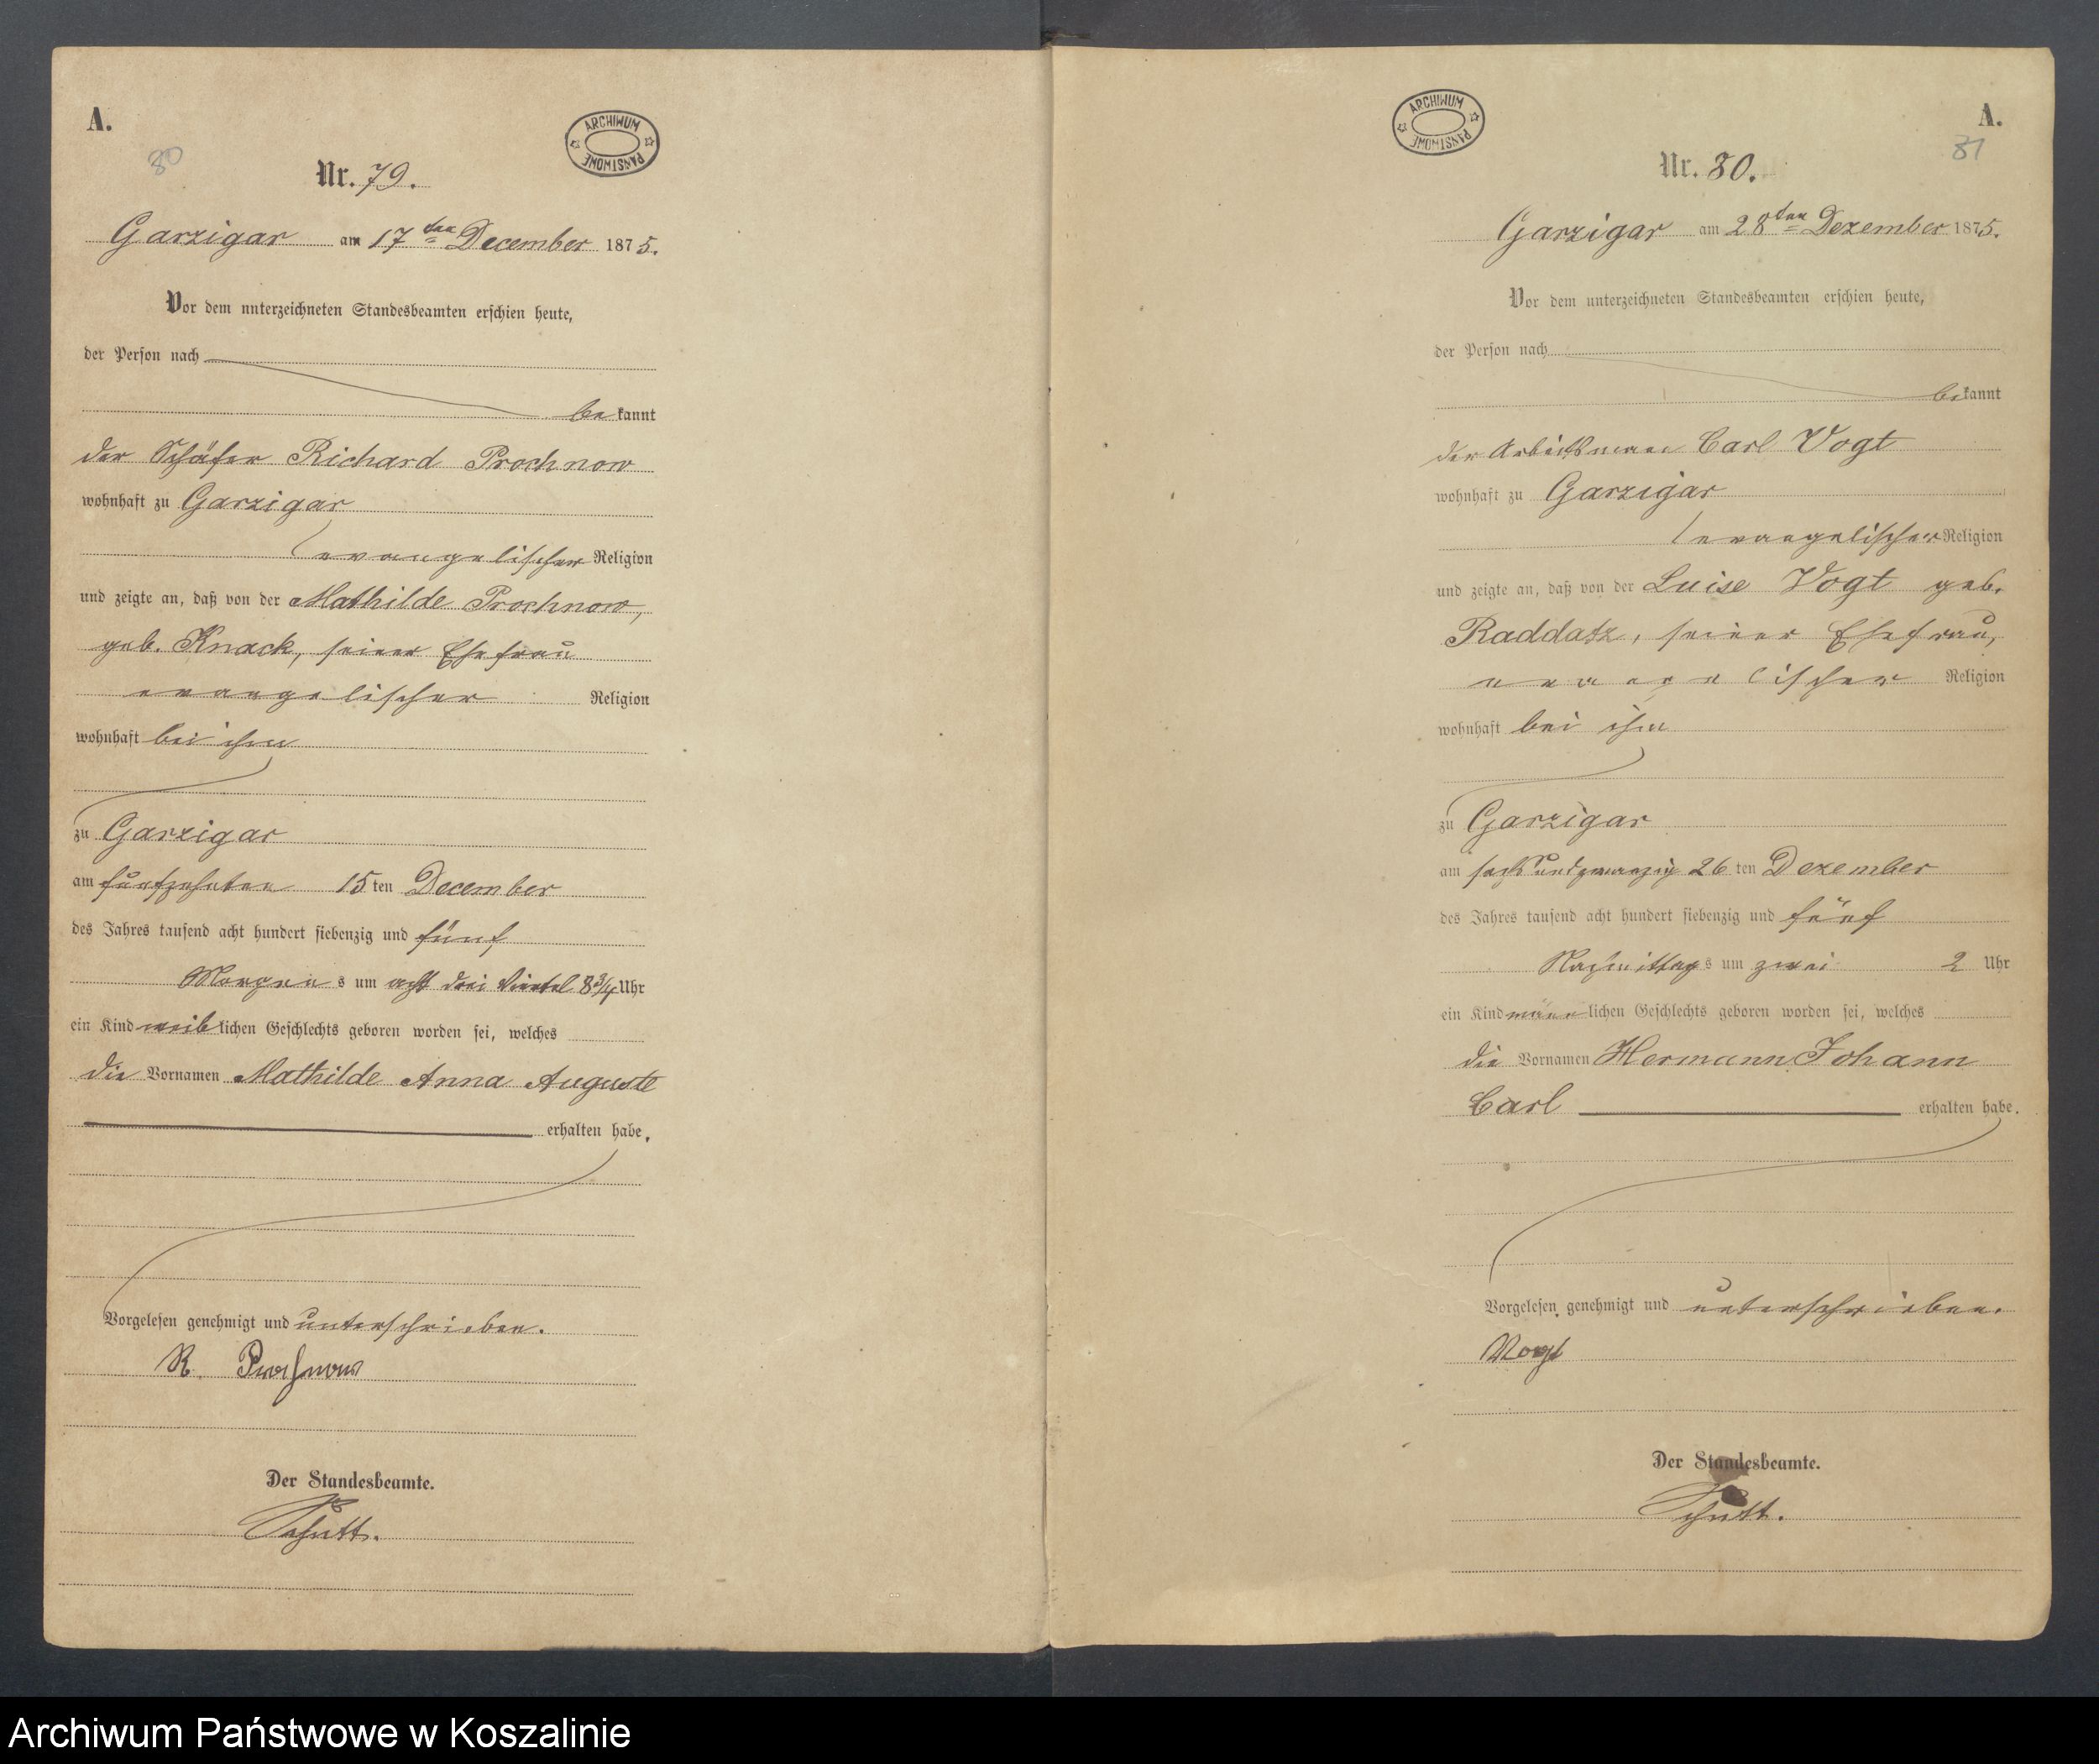 A.
80
ARCHIWUM PAŃSTWOWE
Nr. 79.
Garzigar am 17ten December 1875.
Vor dem unterzeichneten Standesbeamten erschien heute,
der Person nach
bekannt
der Schäfer Richard Prochnow
wohnhaft zu Garzigar
evangelischer Religion
und zeigte an, daß von der Mathilde Prochnow,
geb. Knack, seiner Ehefrau
evangelischer Religion
wohnhaft bei ihm
zu Garzigar
am fünfzehnten 15ten December
des Jahres tausend acht hundert siebenzig und fünf
Morgens um acht drei Viertel 8¾ Uhr
ein Kind weiblichen Geschlechts geboren worden sei, welches
die Vornamen Mathilde Anna Auguste
erhalten habe.
Vorgelesen genehmigt und unterschrieben.
R. Prochnow
Der Standesbeamte.
Schütt.
ARCHIWUM PAŃSTWOWE
A.
81
Nr. 80.
Garzigar am 28ten Dezember 1875.
Vor dem unterzeichneten Standesbeamten erschien heute,
der Person nach
bekannt
der Arbeitsmann Carl Vogt
wohnhaft zu Garzigar
evangelischer Religion
und zeigte an, daß von der Luise Vogt geb.
Raddatz, seiner Ehefrau,
evangelischer Religion
wohnhaft bei ihm
zu Garzigar
am sechsundzwanzig 26ten Dezember
des Jahres tausend acht hundert siebenzig und fünf
Nachmittags um zwei 2 Uhr
ein Kind männlichen Geschlechts geboren worden sei, welches
die Vornamen Hermann Johann
Carl erhalten habe.
Vorgelesen genehmigt und unterschrieben.
Vogt
Der Standesbeamte.
Schütt.
Archiwum Państwowe w Koszalinie